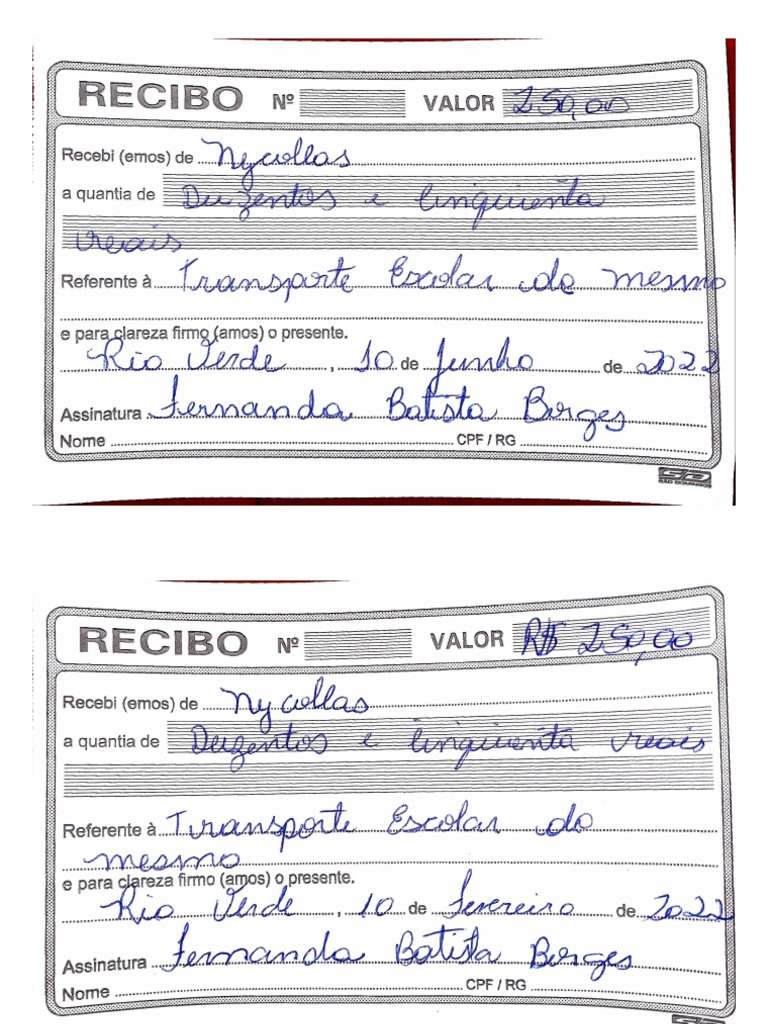 RECIBO Nº VALOR 250,00
Recebi (emos) de Nycollas
a quantia de Duzentos e Cinquienta
reais
Referente à Transporte Escolar do mesmo
e para clareza firmo (amos) o presente.
Rio Verde, 10 de Junho de 2022
Assinatura Fernanda Batista Borges
Nome CPF / RG
SD
SÃO DOMINGOS
RECIBO Nº VALOR R$ 250,00
Recebi (emos) de Nycollas
a quantia de Duzentos e Cinquienta reais
Referente à Transporte Escolar do
mesmo
e para clareza firmo (amos) o presente.
Rio Verde, 10 de Fevereiro de 2022
Assinatura Fernanda Batista Borges
Nome CPF / RG